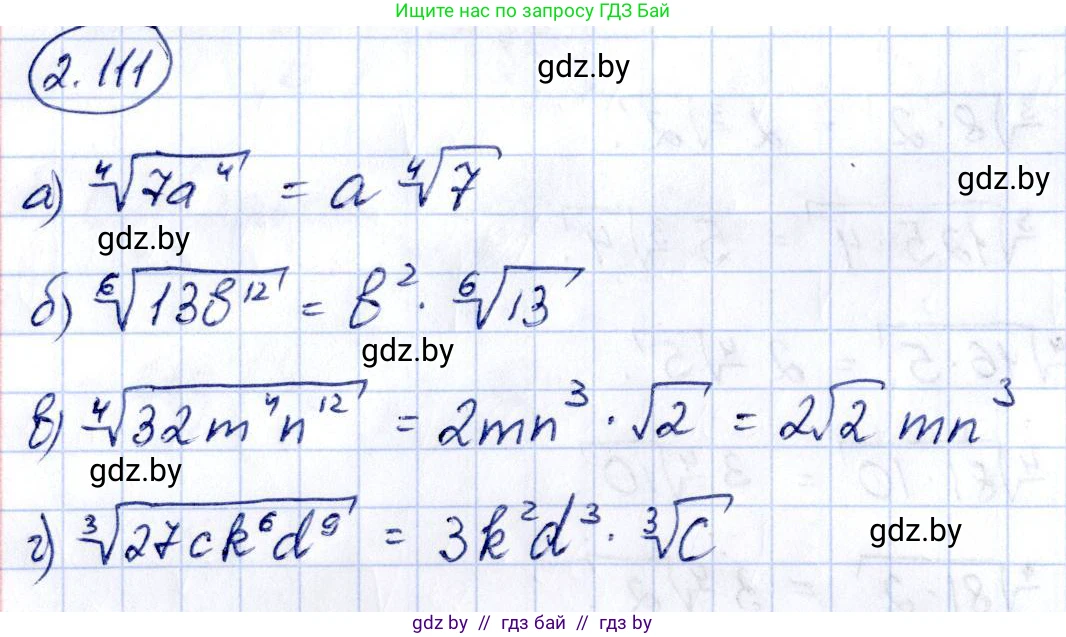 Ищите нас по запросу ГДЗ Бай
2.111
gdz.by
а) ⁴√(7a⁴) = a ⁴√7
gdz.by
gdz.by
б) ⁶√(13b¹²) = b² · ⁶√13
gdz.by
в) ⁴√(32m⁴n¹²) = 2mn³ · √2 = 2√2 mn³
gdz.by
г) ³√(27ck⁶d⁹) = 3k²d³ · ³√c
gdz.by
gdz.by // гдз бай // gdz by